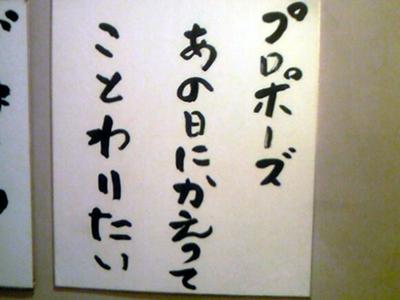 プロポーズ
あの日にかえって
ことわりたい